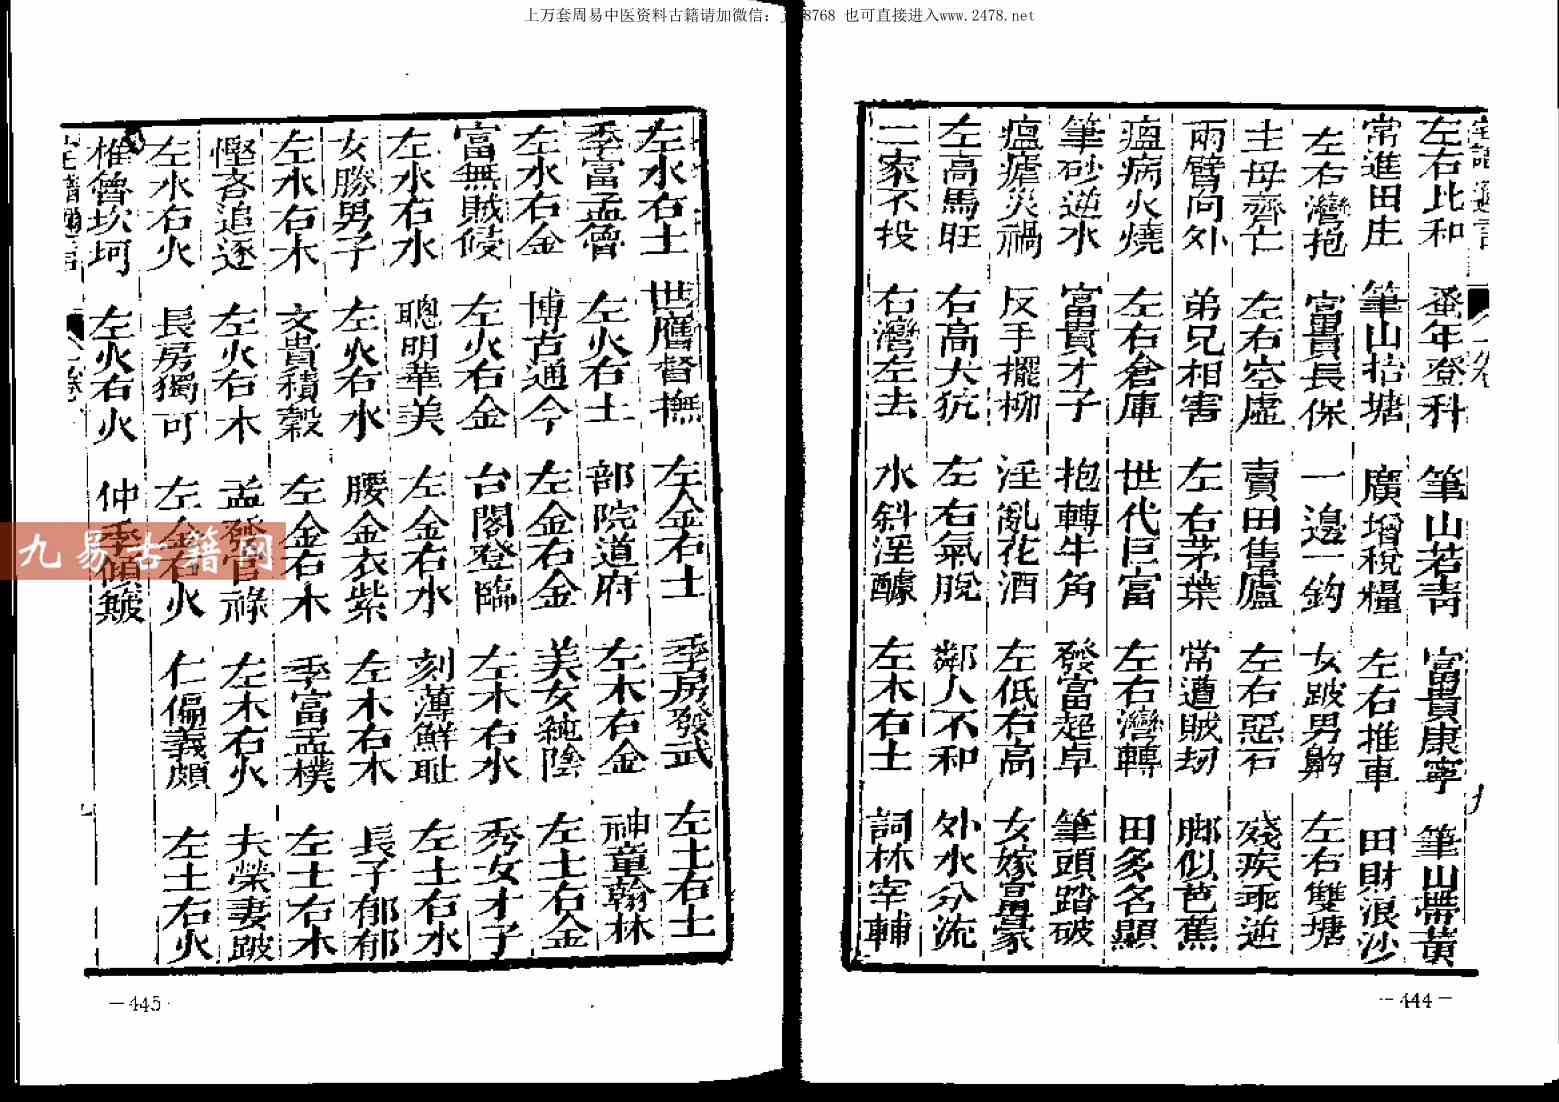 上万套周易中医资料古籍请加微信： 8768 也可直接进入www.2478.net
左右比和 蚤年登科 筆山若青 富貴康寧 筆山帶黃
常進田庄 筆山抬塘 廣增稅糧 左右推車 田財浪沙
左右灣抱 富貴長保 一邊一鈎 女跛男 左右雙塘
主母齊亡 左右空虛 賣田售廬 左右惡石 殘疾乖逆
兩臂向外 弟兄相害 左右茅葉 常遭賊刼 脚似芭蕉
瘟病火燒 左右倉庫 世代巨富 左右灣轉 田多名顯
筆砂逆水 富貴才子 抱轉牛角 發富超卓 筆頭踏破
瘟瘧災禍 反手擺柳 淫亂花酒 左低右高 女嫁富豪
左高馬旺 右高大抗 左右氣脫 鄰人不和 外水分流
二家不投 右灣左去 水斜淫醵 左木右土 詞林宰輔
—444—
左水右土 世膺督撫 左金右土 季房發武 左土右土
季富孟魯 左火右土 部院道府 左木右金 神童翰林
左水右金 博古通今 左金右金 美女純陰 左土右金
富無賊侵 左火右金 台閣登臨 左木右水 秀女才子
左水右水 聰明華美 左金右水 刻薄鮮耻 左土右水
女勝男子 左火右水 腰金衣紫 左木右木 長子郁郁
左水右木 文貴積穀 左金右木 季富孟樸 左土右木
慳吝追逐 左火右木 孟發官祿 左木右火 夫榮妻跛
左水右火 長房獨可 左金右火 仁偏義頗 左土右火
椎魯坎坷 左火右火 仲季傾
—445
九易古籍网